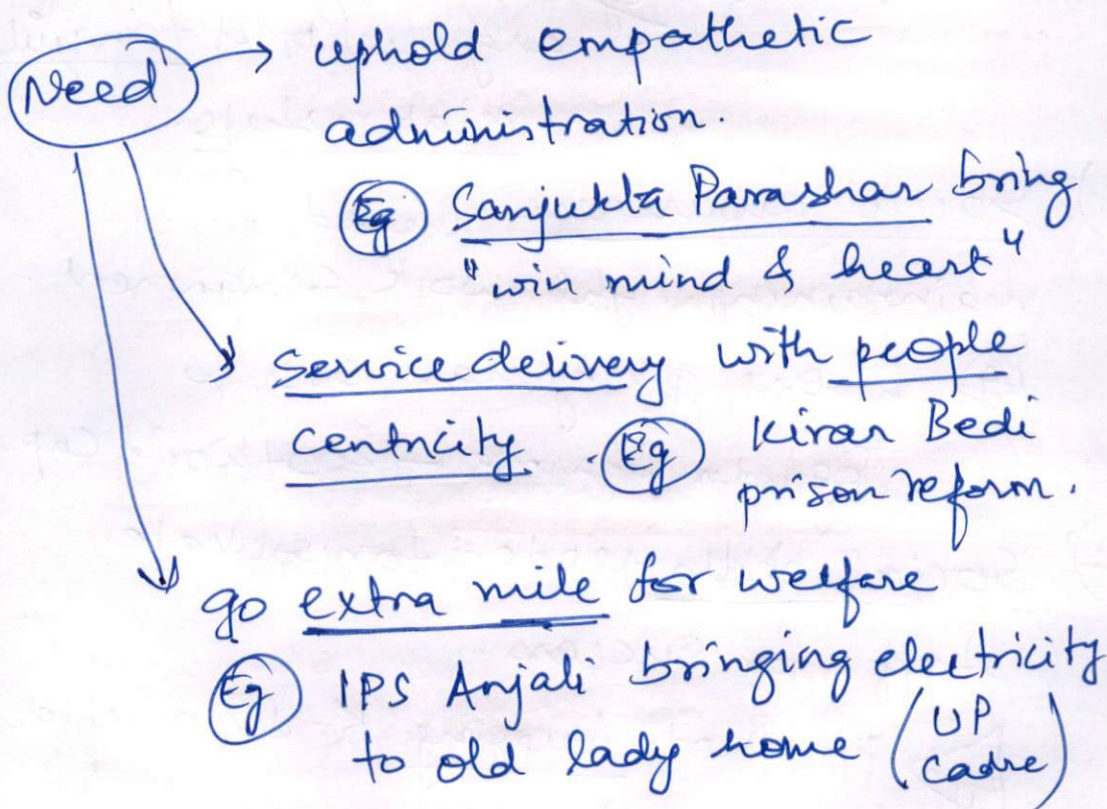 Need → uphold empathetic
administration.
Eg Sanjukta Parashar bring
"win mind & heart"
service delivery with people
centricity. Eg Kiran Bedi
prison reform.
go extra mile for welfare
Eg IPS Anjali bringing electricity
to old lady home (UP
Cadre)